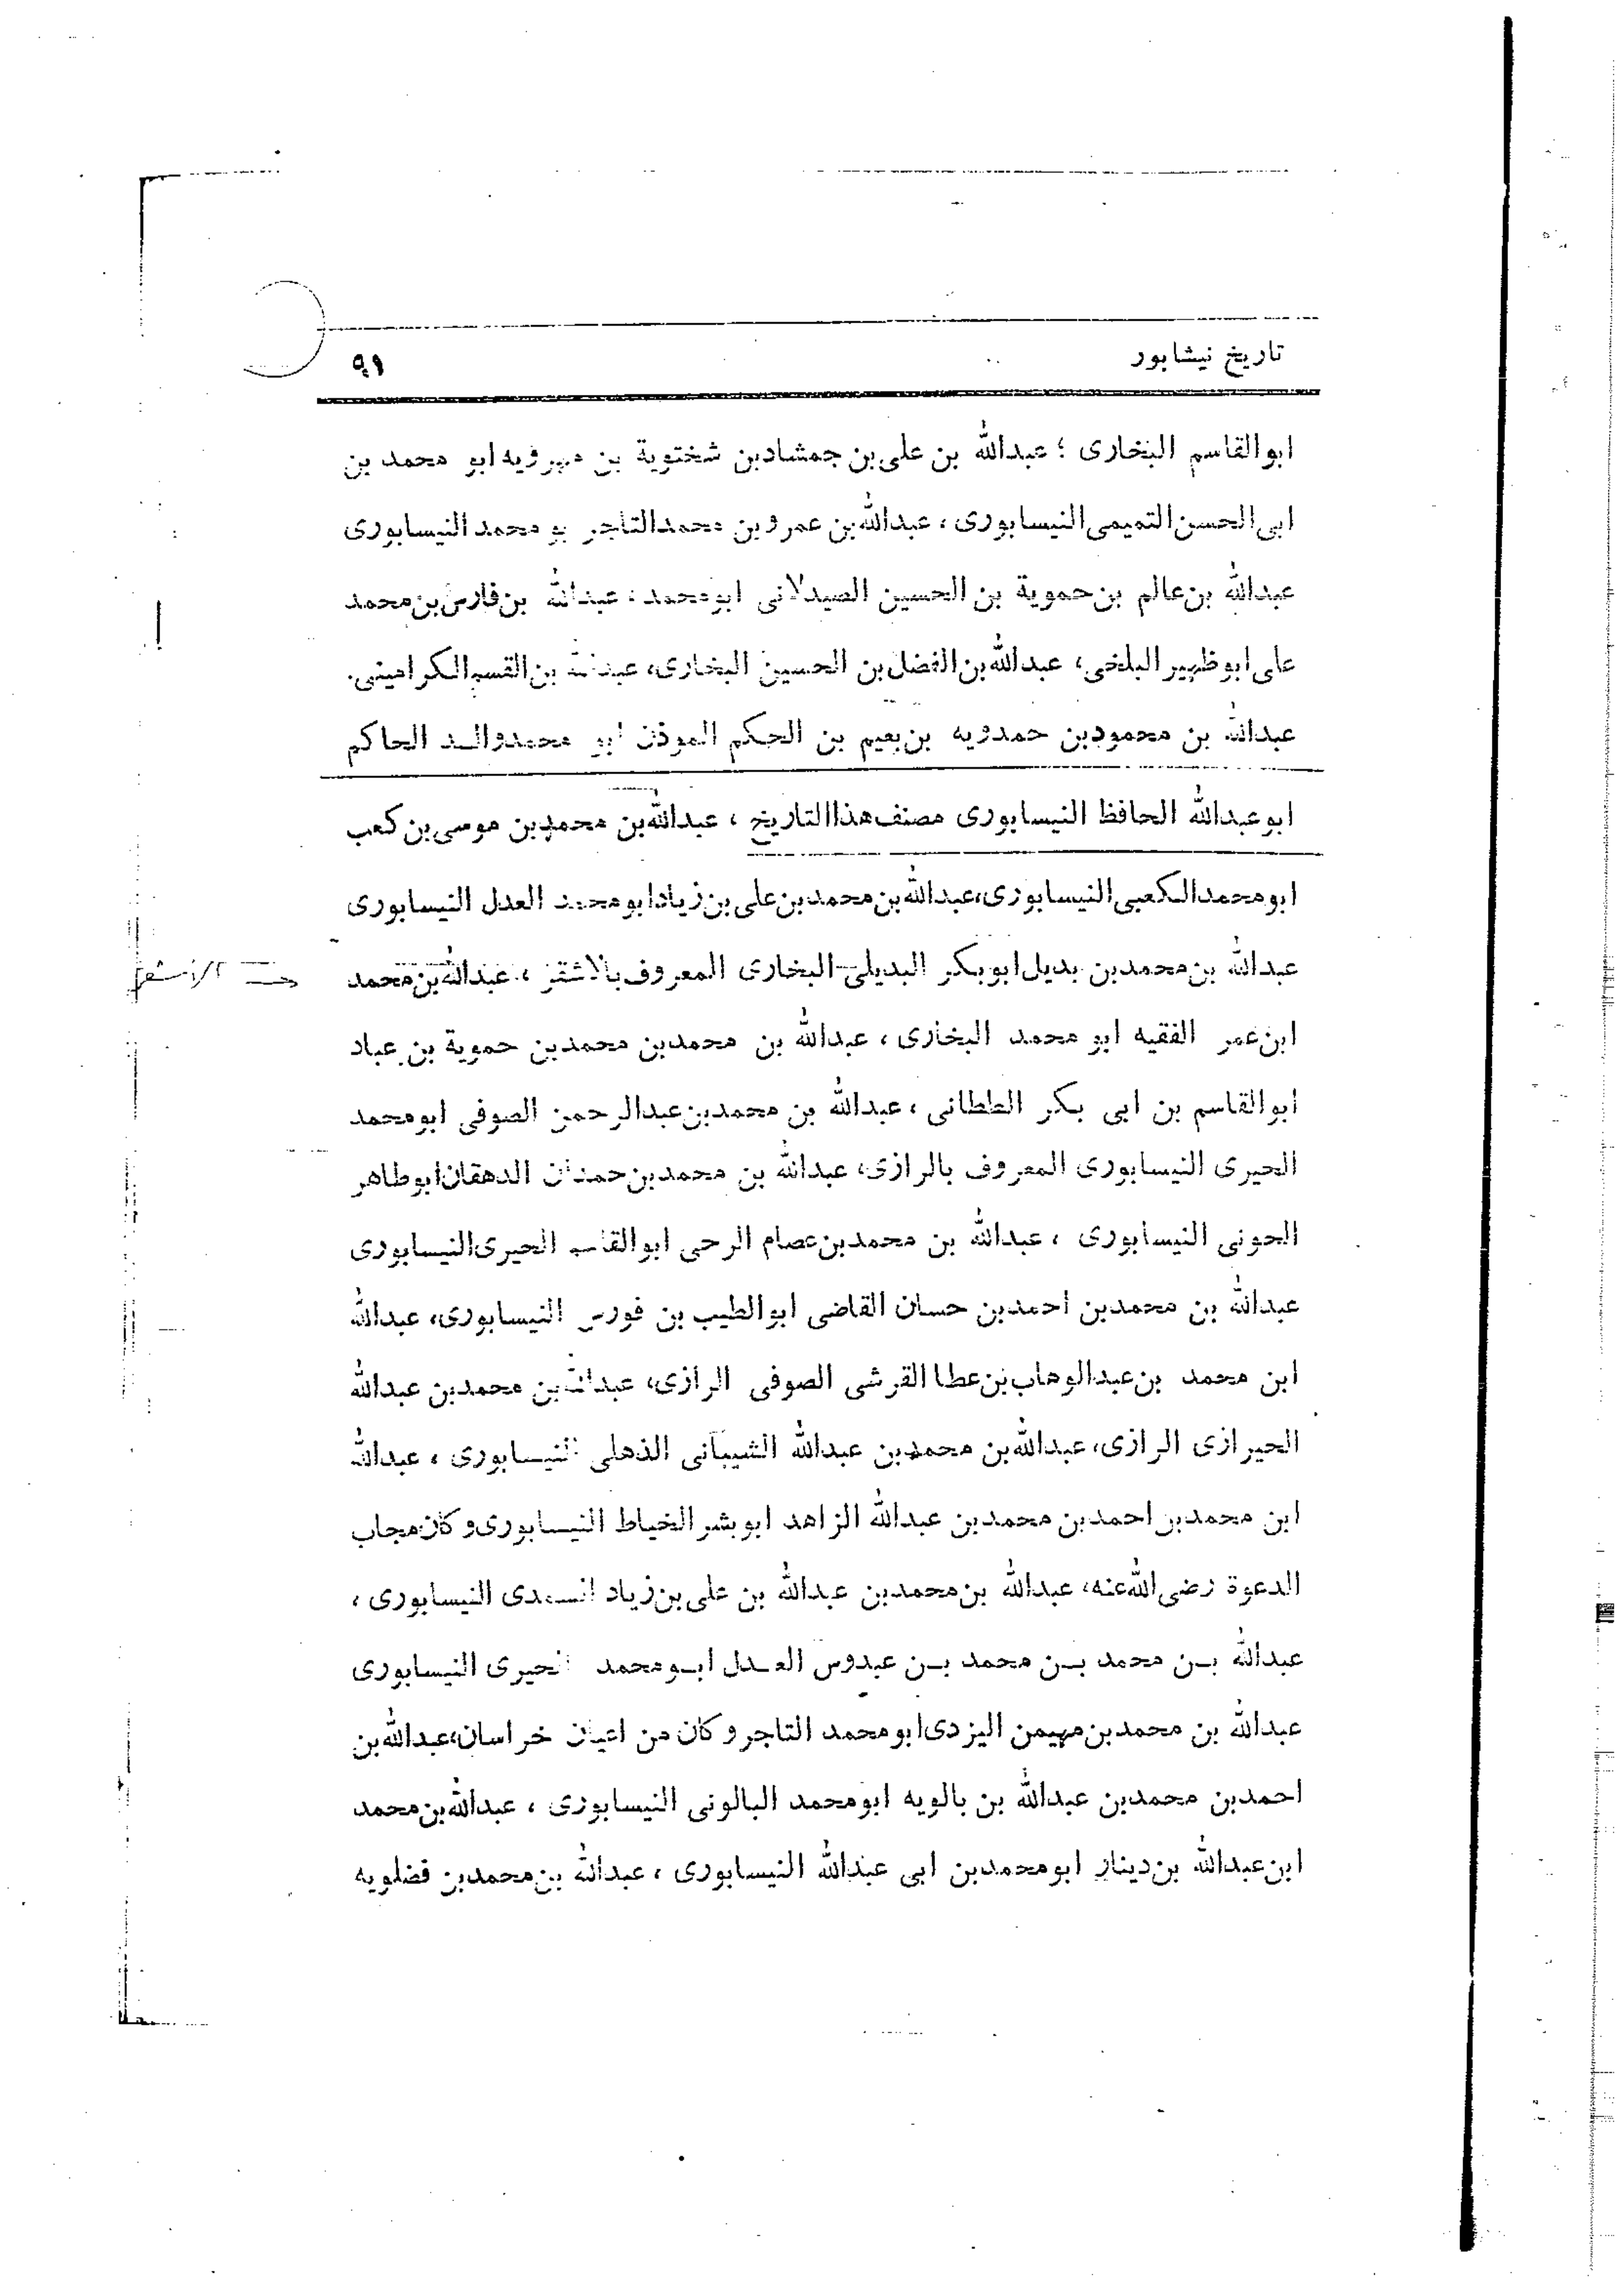 تاریخ نیشابور
٩١
ابوالقاسم البخاری ؛ عبدالله بن علی بن جمشادبن شختویة بن مهرویه ابو محمد بن
ابی الحسن التمیمی النیسابوری ، عبدالله بن عمرو بن محمدالتاجر بو محمد النیسابوری
عبدالله بن عالم بن حمویة بن الحسین الصیدلانی ابومحمد ، عبدالله بن فارس بن محمد
علی ابوظهیر البلخی ، عبدالله بن الفضل بن الحسین البخاری، عبدالله بن القسم
عبدالله بن محمودبن حمدویه بن بعیم بن الحکم الموذن ابو محمدوالد الحاکم
ابوعبدالله الحافظ النیسابوری مصنف هذاالتاریخ ، عبدالله بن محمدبن موسی بن کعب
ابومحمدالکعبی النیسابوری،عبدالله بن محمدبن علی بن زیادابومحمد العدل النیسابوری
عبدالله بن محمدبن بدیل ابوبکر البدیلی البخاری المعروف بالاشقر ، عبدالله بن محمد
ابن عمر الفقیه ابو محمد البخاری ، عبدالله بن محمدبن محمدبن حمویة بن عباد
ابوالقاسم بن ابی بکر الططانی ، عبدالله بن محمدبن عبدالرحمن الصوفی ابومحمد
الحیری النیسابوری المعروف بالرازی، عبدالله بن محمدبن حمدان الدهقان ابوطاهر
الحونی النیسابوری ، عبدالله بن محمدبن عصام الرحی ابوالقاسم الحیری النیسابوری
عبدالله بن محمدبن احمدبن حسان القاضی ابوالطیب بن فورس النیسابوری، عبدالله
ابن محمد بن عبدالوهاب بن عطا القرشی الصوفی الرازی، عبدالله بن محمدبن عبدالله
الحیرازی الرازی، عبدالله بن محمدبن عبدالله الشیبانی الذهلی النیسابوری ، عبدالله
ابن محمدبن احمدبن محمدبن عبدالله الزاهد ابوبشر الخیاط النیسابوری و کان مجاب
الدعوة رضی الله عنه، عبدالله بن محمدبن عبدالله بن علی بن زیاد النیسابوری ،
عبدالله بن محمد بن محمد بن عبدوس العدل ابومحمد الحیری النیسابوری
عبدالله بن محمدبن مهیمن الیزدی ابومحمد التاجر و کان من اعیان خراسان،عبدالله بن
احمدبن محمدبن عبدالله بن بالویه ابومحمد البالونی النیسابوری ، عبدالله بن محمد
ابن عبدالله بن دینار ابومحمدبن ابی عبدالله النیسابوری ، عبدالله بن محمدبن فضلویه